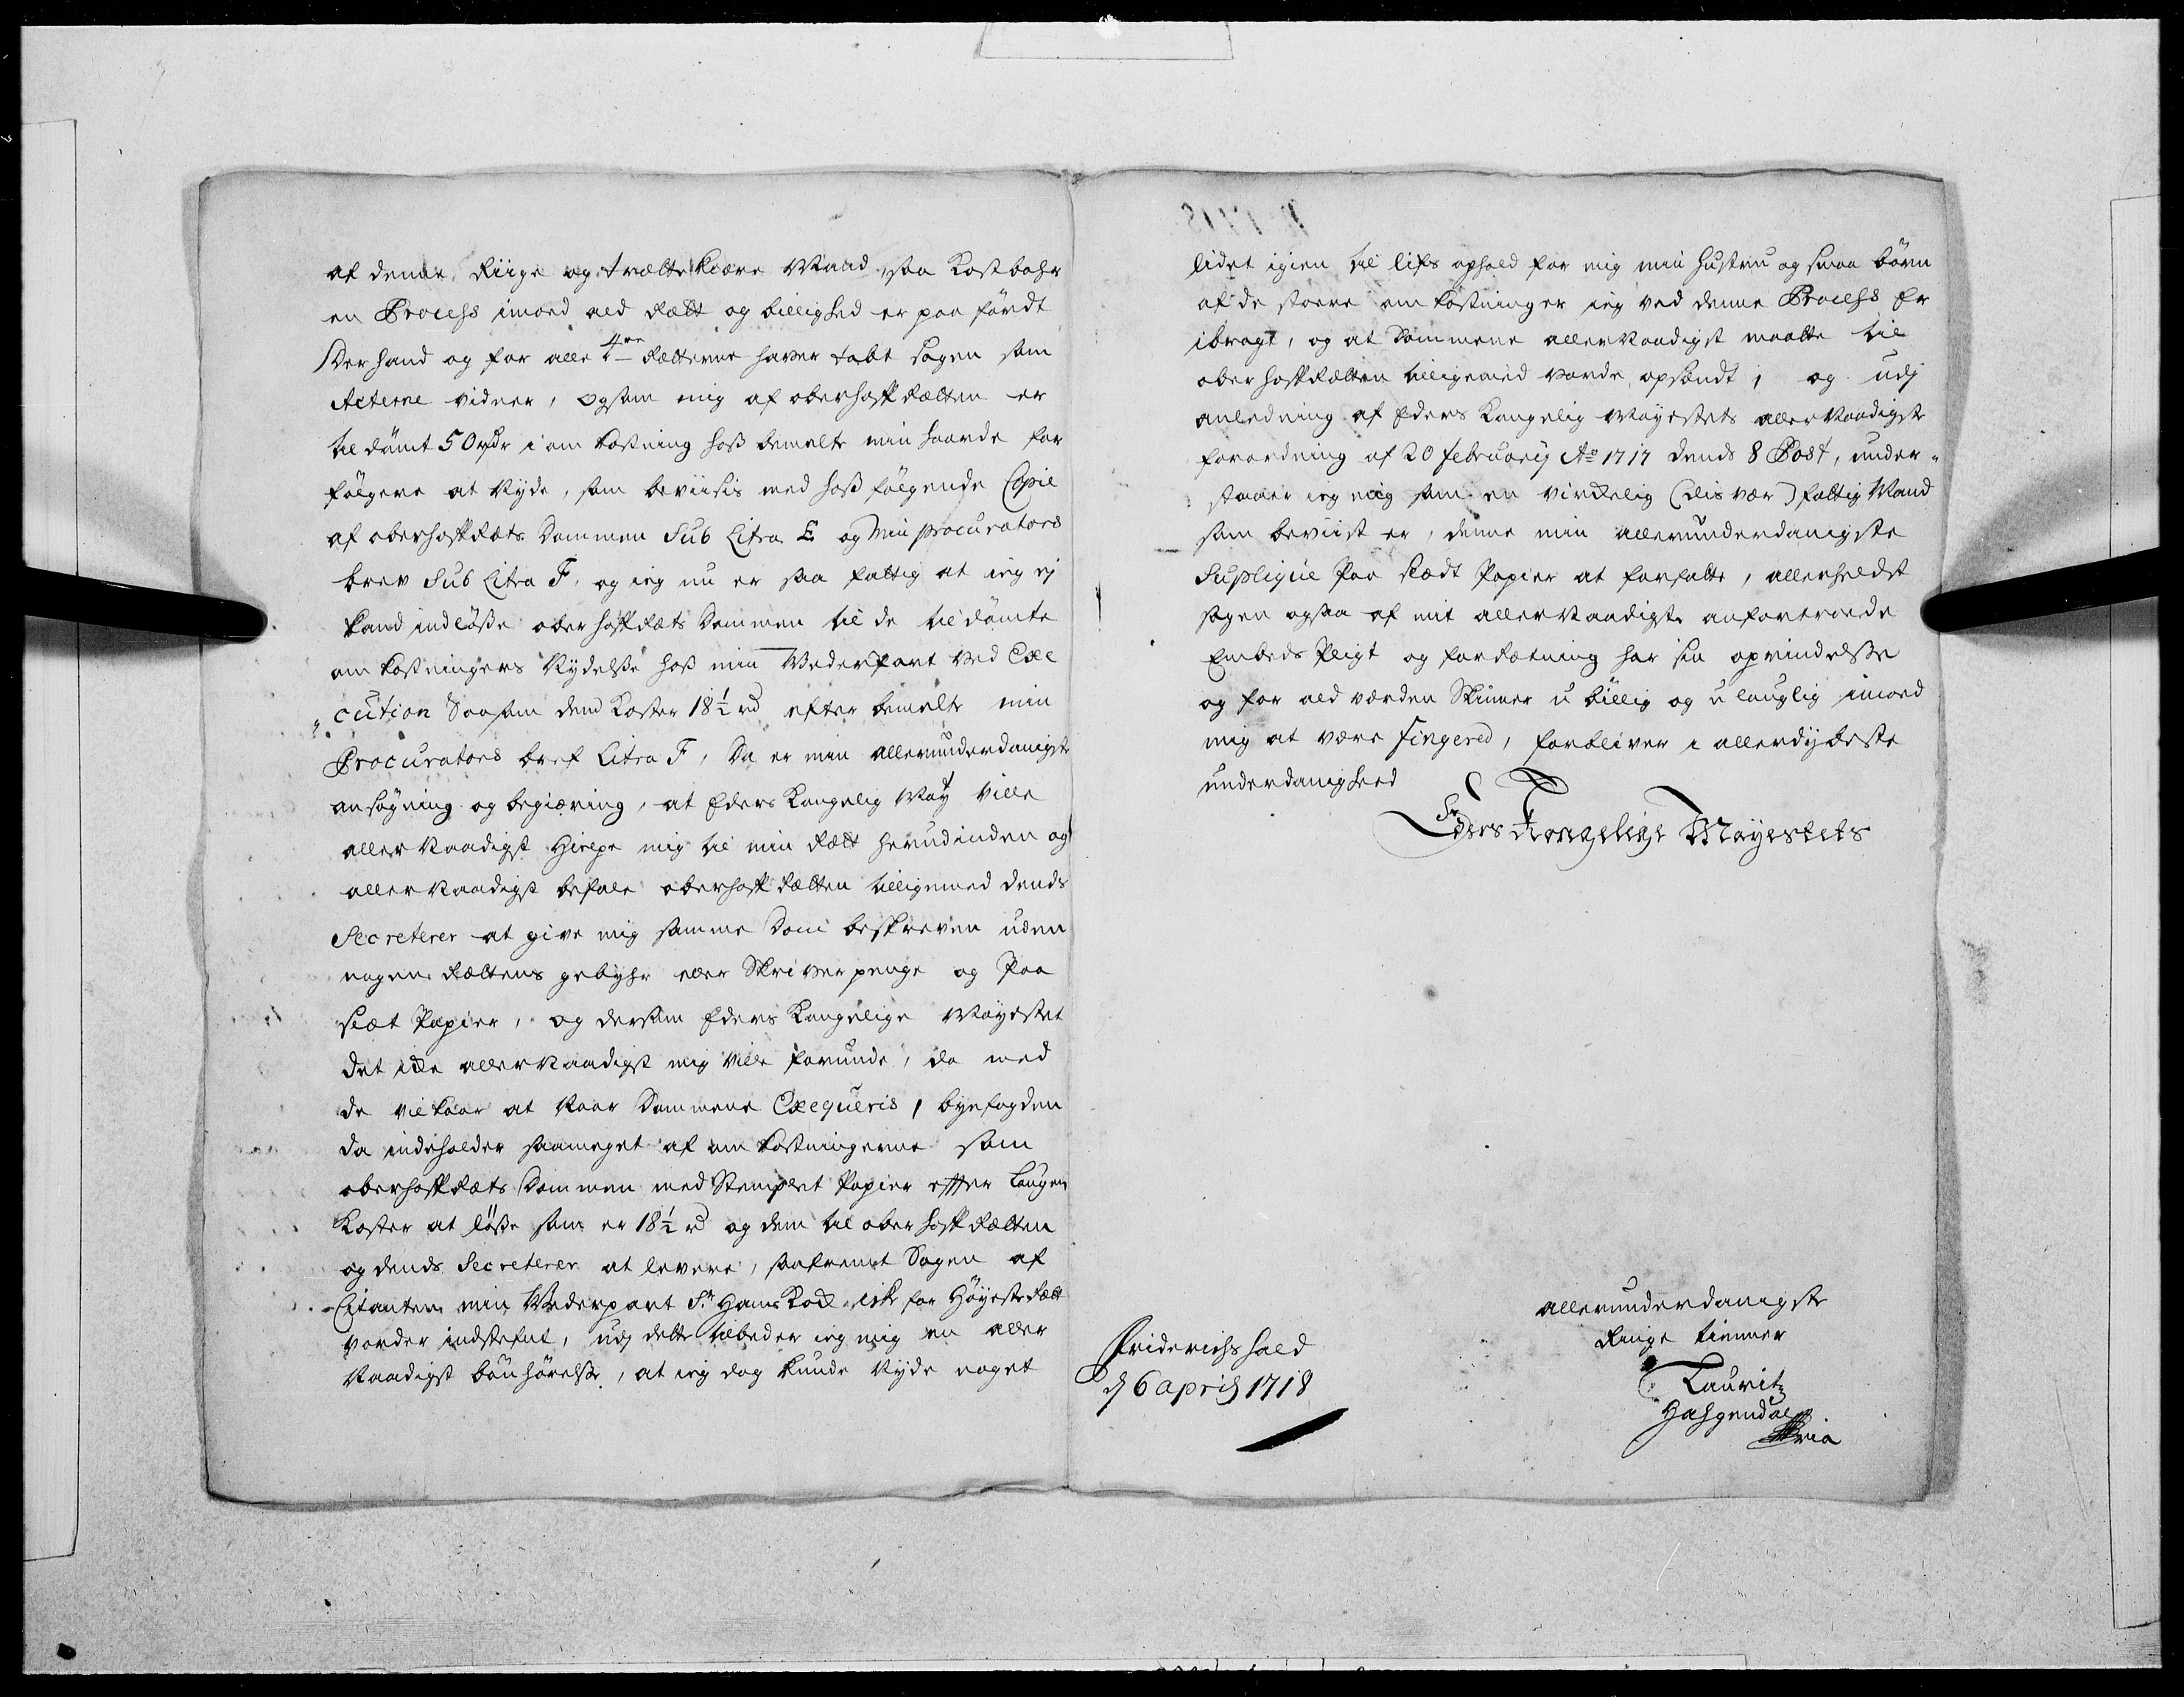 af denne Riige og trættekiære Mand, saa Kostbahr
en Process imood ald Rætt og billighed er paa fördt
der hand og for alle 4re Rætterne haver tabt sagen som
Acterne vidner, ogsom mig af oberhoffRætten er
til dömt 50 rdr i om kostning hoss bemelte min haarde for
fölgere at Nyde, som beviisis med hoss fölgende Copie
af oberhoffRæts Dommen Sub Litra E og Min procurators
brev Sub Litra F, og ieg nu er saa fattig at ieg ej
kand indlösse oberhoffRæts Dommen til de til dömte
om kostningers Nydelsse hoss min Vederpart Ved Exe
cution Saasom dend Koster 18½ rd efter bemelte min
Procurators bref Litra F, Da er min allerunderdanigste
ansögning og begiæring, at Eders Kongelig May ville
aller Naadigst Hielpe mig til min Rætt herudinden og
aller Naadigst befale oberhoffRætten tilligemed dends
Secreterer at give mig samme Dom beskreven uden
nogen Rættens gebyhr eller Skriverpenge og Paa
slæt Papier, og dersom Eders Kongelige Mayestet
det icke allerNaadigst mig ville forunde, da med
de vilkaar at Naar Dommene Exequeris, byefogden
da indeholder saameget af om kostningerne som
oberhoffRæts Dommen med Stemplet Papier efter Laugen
Koster at lösse som er 18½ rd og dem til oberhoffRætten
og dends Secreterer at levere, saafremt Sagen af
Citanten min Vederpart Sr Hans Kock icke for HöyesteRætt
vorder indstefnt, udj dette tilbeder ieg mig en aller
Naadigst bönhörelsse, at ieg dog kunde Nyde noget
lidet igien til lifs ophold for mig min hustru og smaa börn
af de stoere om kostninger ieg ved denne Process Er
ibragt, og at Dommene allerNaadigst maatte til
oberhoffRætten tilligemed vorde opsendt, og udj
anledning af Eders Kongelig Mayestets allerNaadigste
forordning af 20 februarij Ao 1717 dends 8 Post, under
staaer ieg mig som en virckelig (dis vær) fattig Mand
som beviist er, denne min allerunderdanigste
Suplique Paa slædt Papier at forfatte, allerheldst
sagen ogsaa af mit allerNaadigste anfortroede
Embeds Pligt og forRætning har sin oprindelsse
og for ald værden Skinner u billig og u lauglig imoed
mig at være fingered, forbliver i allerdybeste
underdanighed
Eders Kongelige Mayestets
allerunderdanigste
Ringe tienner
Lauritz
Friderichshald
d 6 april 1718